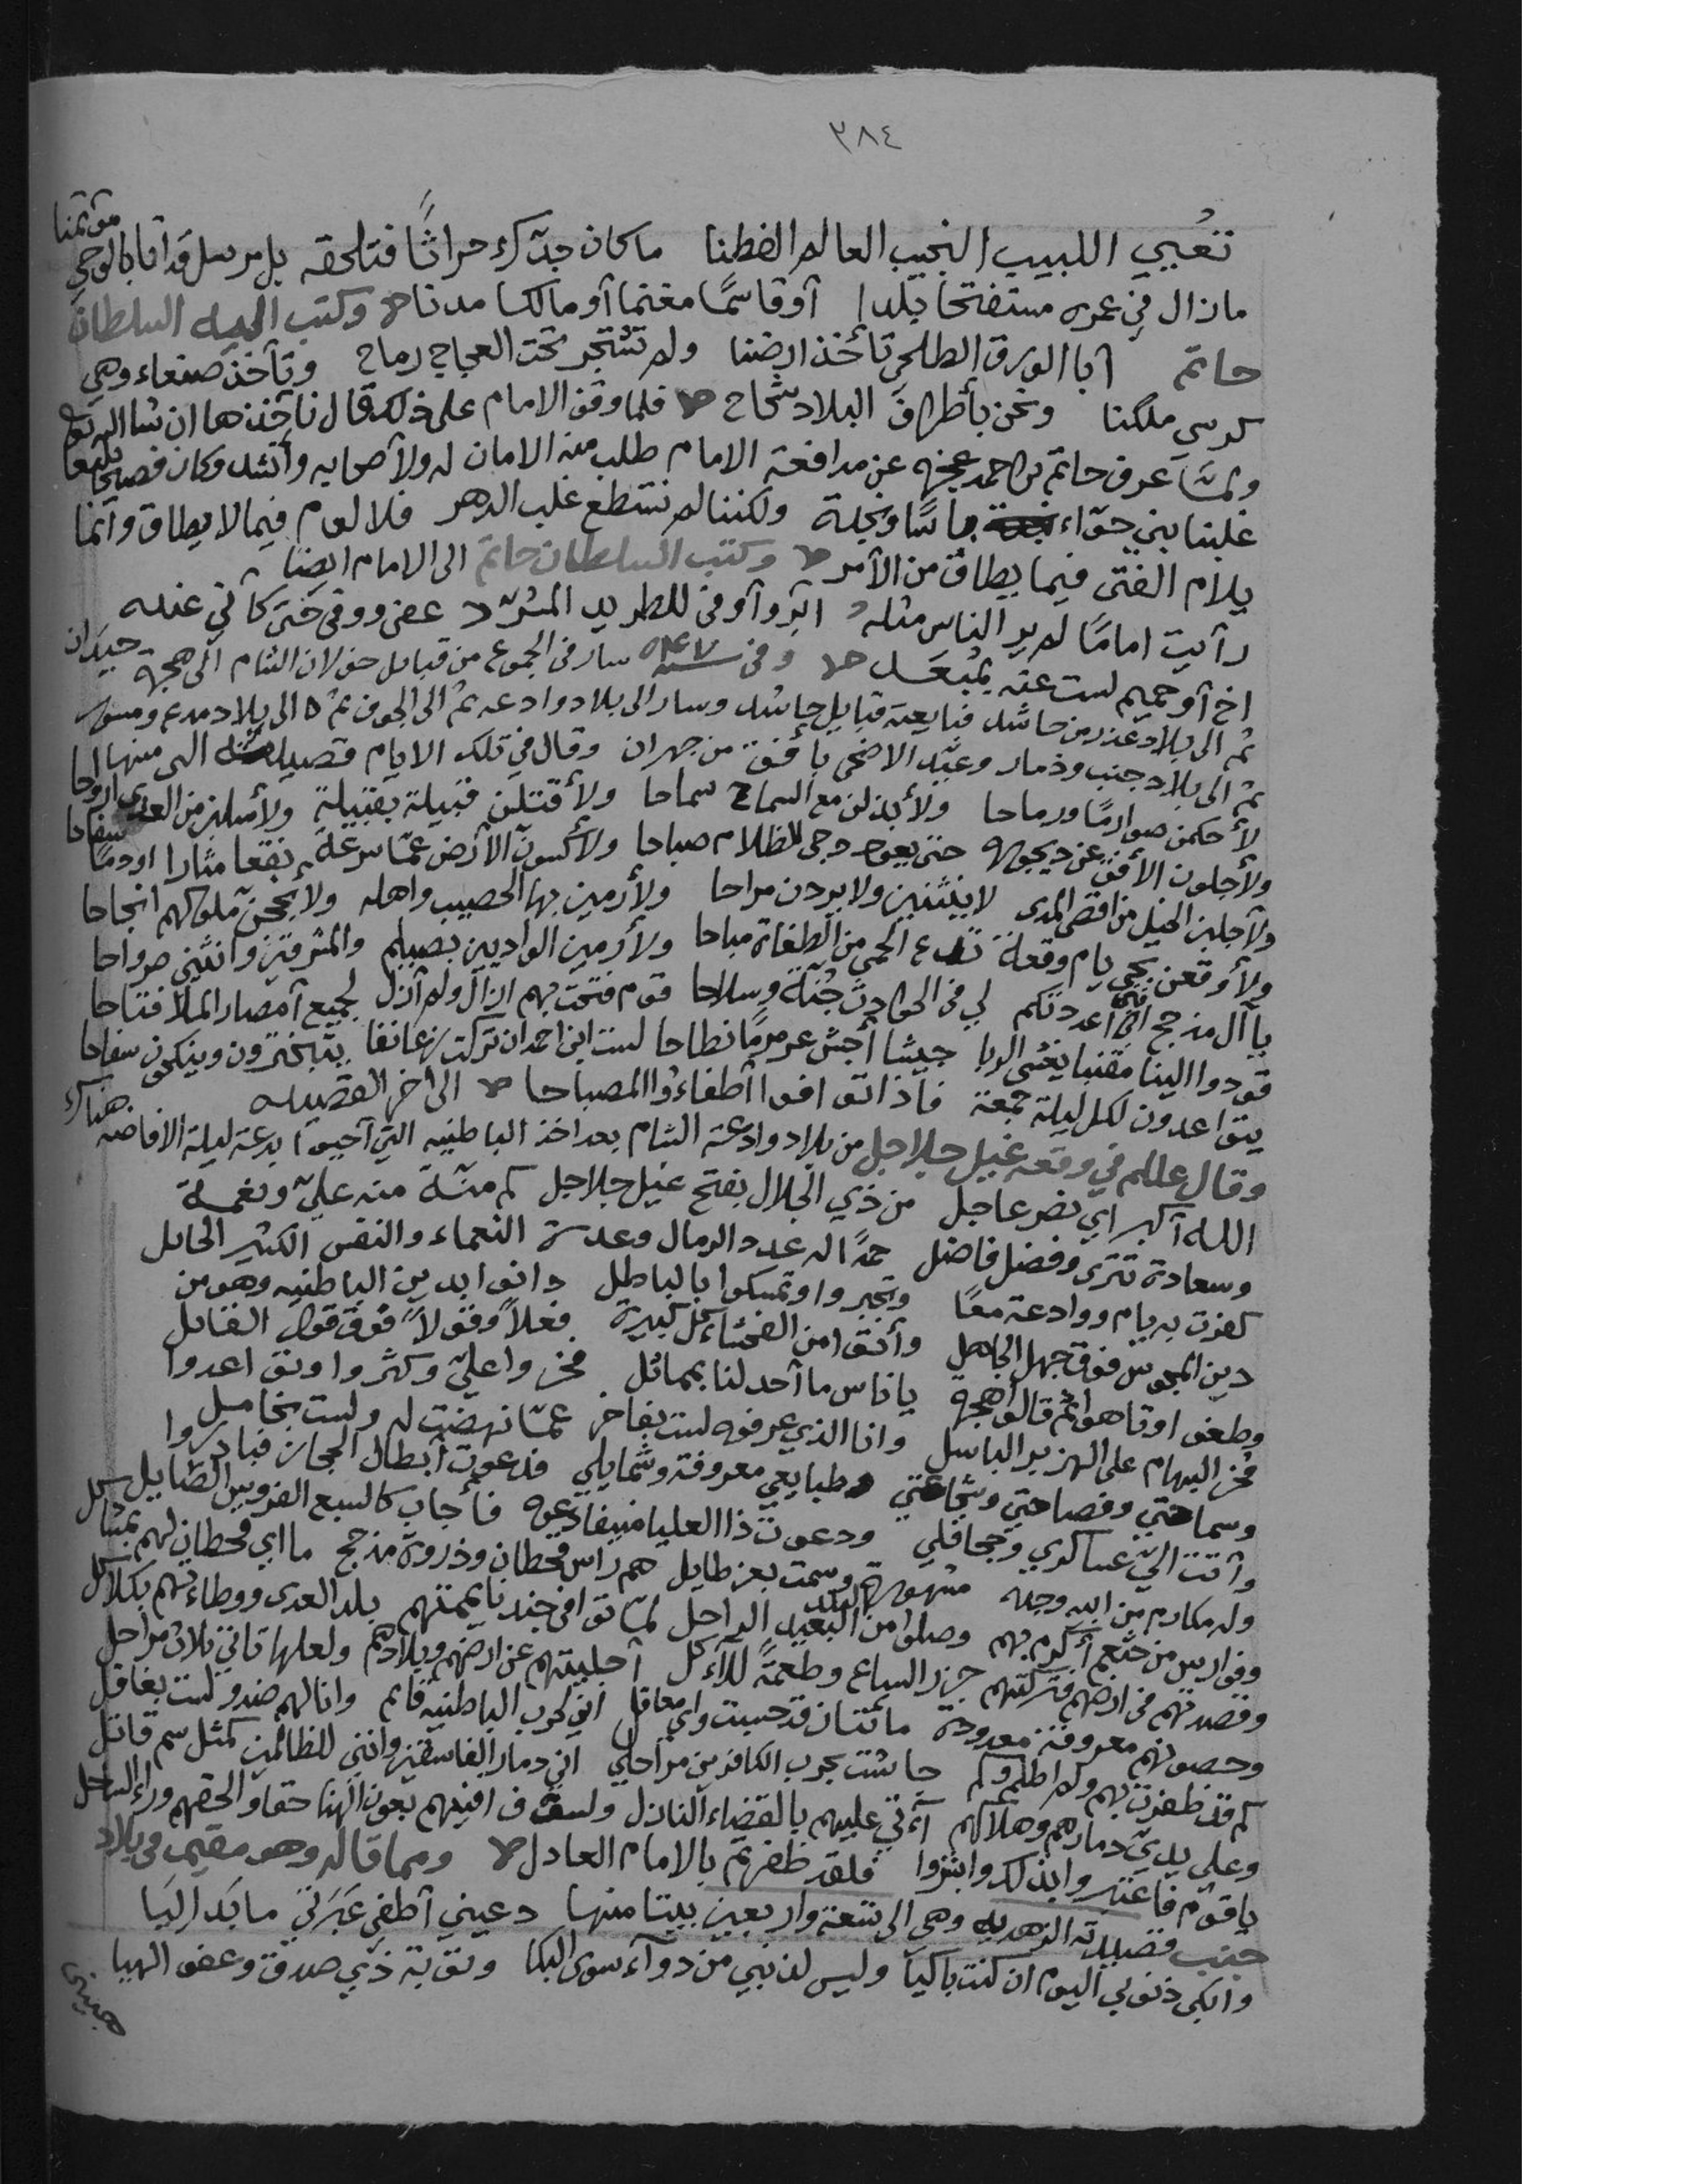 ٣٨٤
تُعيي اللبيب النجيب العالم الفطنا ما كان جدّك حراثًا فتلحقه بل مرسل قد أتانا بالوحي مؤتمنا
مازال في عمره مستفتحا بلدا أو قاسمًا مغنما أو مالكا مدنا وكتب اليه السلطان
حاتم أبا الورق الطلحي تأخذ ارضنا ولم تشتجر تحت العجاج رماح وتأخذ صنعاء وهي
كرسي ملكنا ونحن بأطراف البلاد شحاح فلما وقف الامام على ذلك قال نأخذها ان شا الله تع
ولمّا عرف حاتم بن احمد عجزه عن مدافعة الامام طلب منه الامان له ولأصحابه وأنشد وكان فصيحا بليغا
غلبنا بني حوّاء بأسًا ونجدة ولكننا لم نستطع غلب الدهر فلا لوم فيما لا يطاق وانما
يلام الفتى فيما يطاق من الأمر وكتب السلطان حاتم الى الامام ايضا
رأيت امامًا لم ير الناس مثله أبر وأوفى للطريد المشرّد عفى ووفى حتى كأني عنده
اخ أو حميم لست عنه بمبعد وفي سنة ٥٤٧ سار في الجموع من قبايل خولان الشام الى هجرة حيدان
ثم الى بلاد عذر من حاشد فبايعته قبايل حاشد وسار الى بلاد وادعه ثم الى الجوف ثم الى بلاد مدع ومسور
ثم الى بلاد جنب وذمار وعيّد الاضحى بأفق من جهران وقال في تلك الايام قصيدته التي منها
لأحكمن صوارمًا ورماحا ولأبذلن مع السماح سماحا ولأقتلن قبيلة بقبيلة ولأسلبن من العدى ارواحا
ولأجلون الأفق عن ديجوره حتى يعود دجى الظلام صباحا ولأكسون الأرض عمّا سرعة نقعا مثارا او دمًا سفاحا
ولأجلبن الخيل من اقصى المدى لا ينثنين ولا يردن مراحا ولأرمين بها الحصيب واهله ولأنجحن ملوكهم انجاحا
ولأوقعن بحي يام وقعة تدع الحمى من الطغاة مباحا ولأرمين الواديين بصيلم والمشرقين وأنثني مرواحا
يا آل مذحج انني أعددتكم لي في الحوادث جُنّة وسلاحا قوم فتحت بهم ازال ولم أزل لجميع أمصار الملا فتاحا
قودوا الينا مقنبا يغشى الربا جيشا أجش عرمرمًا نطاحا لست ابن احمد ان تركت زعانفا يتبخترون وينكحون سفاحا
يتواعدون لكل ليلة جمعة فاذا توافوا أطفاءوا المصباحا الى أخر القصيده
وقال عللم في وقعة غيل جلاجل من بلاد وادعة الشام بعد اخذ الباطنيه التي أحيوا بدعة ليلة الافاضه هنالك
الله أكبر اي نصر عاجل من ذي الجلال بفتح غيل جلاجل كم منّة منه عليّ ونعمة
وسعادة تترى وفضل فاضل حمدًا له عدد الرمال وعدة النعماء والنقس الكثير الحايل
كفرت به يام ووادعة معًا وتجبروا وتمسكوا بالباطل دانوا بدين الباطنيه وهو من
دين المجوس فوق جهل الجاهل وأتوا من الفحشاء كل كبيرة فعلًا وقولًا فوق قول القائل
وطغوا وتاهوا ثم قالوا هجرة يا ناس ما أحد لنا بمماثل فخروا عليّ وكثّروا وتواعدوا
فخر البهام على الهزبر الباسل وانا الذي عرفوه لست بفاخر عمّا نهضت له ولست بخامل
وسماحتي وفصاحتي وشجاعتي وطبايعي معروفة وشمايلي فدعوت أبطال الحجاز فبادروا
وأتت اليّ عساكري وجحافلي ودعوت ذا العليا منيفا دعوة فأجاب كالسبع الضروب الصايل
وله مكارم من ابيه وجده مشهورة وسمت بعز طايل هم راس قحطان وذروة مذحج ما اي قحطان لهم بمشاكل
وفوارس من خثعم أكرم بهم وصلوا من البلد البعيد الراحل لمّا توافى جندنا يممتهم بلد العدى ووطاءتهم بكلاكل
وقصدتهم في ارضهم فتركتهم جزر السباع وطعمةً للآكل أجليتهم عن ارضهم وبلادهم ولعلها تأتي ثلاث مراحل
وحصونهم معروفة معدودة مائتان قد حسبت واي معاقل اني لحرب الباطنية قايم وانا لهم ضد ولست بغافل
كم قد ظفرت بهم ولم اظلمهم جاشت بحرب الكافرين مراجلي اني دمار الفاسقين وانني للظالمين كمثل سم قاتل
وعلى يديّ دمارهم وهلاكهم آتي عليهم بالقضاء النازل ولسوف افنيهم بعون الهنا حقا وألحقهم وراء الساحل
يا قوم فاعتبروا بذلك وابشروا فلقد ظفرتم بالامام العادل ومما قاله وهو مقيم في بلاد
جنب قصيدته الزهديه وهي الى تسعة واربعين بيتا منها دعيني أطفي عبرتي ما بدا ليا
وابكي ذنوبي اليوم ان كنت باكيا وليس لذنبي من دوآء سوى البكا وتوبة ذي صدق وعفو الهيا